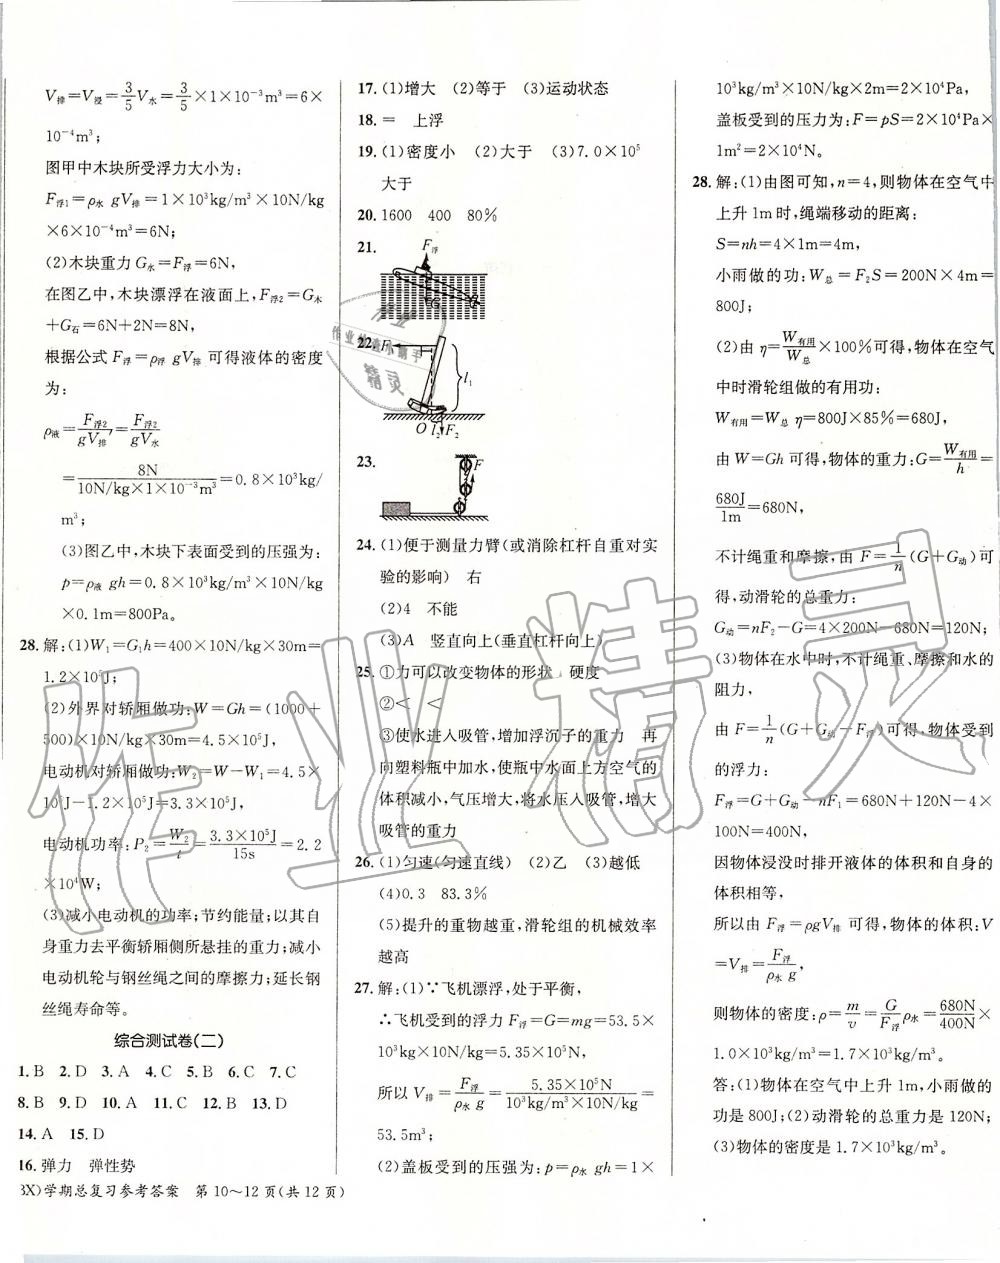 V排=V浸=3/5V水=3/5×1×10⁻³m³=6×
10⁻⁴m³；
图甲中木块所受浮力大小为：
F浮1=ρ水 gV排=1×10³kg/m³×10N/kg
×6×10⁻⁴m³=6N；
(2)木块重力G水=F浮=6N，
在图乙中，木块漂浮在液面上，F浮2=G木
+G石=6N+2N=8N，
根据公式 F浮=ρ浮 gV排 可得液体的密度
为：
ρ液=F浮2/gV排′=F浮2/gV水
=8N/10N/kg×1×10⁻³m³=0.8×10³kg/
m³；
(3)图乙中，木块下表面受到的压强为：
p=ρ液 gh=0.8×10³kg/m³×10N/kg
×0.1m=800Pa。
28.解：(1)W₁=G₁h=400×10N/kg×30m=
1.2×10⁵J；
(2)外界对轿厢做功：W=Gh=(1000+
500)×10N/kg×30m=4.5×10⁵J，
电动机对轿厢做功：W₂=W-W₁=4.5×
10⁵J-1.2×10⁵J=3.3×10⁵J，
电动机功率：P₂=W₂/t=3.3×10⁵J/15s=2.2
×10⁴W；
(3)减小电动机的功率；节约能量；以其自
身重力去平衡轿厢侧所悬挂的重力；减小
电动机轮与钢丝绳之间的摩擦力；延长钢
丝绳寿命等。
综合测试卷(二)
1.B 2.D 3.A 4.C 5.B 6.C 7.C
8.B 9.D 10.A 11.C 12.B 13.D
14.A 15.D
16.弹力 弹性势
BX)学期总复习参考答案 第10～12页(共12页)
17.(1)增大 (2)等于 (3)运动状态
18.= 上浮
19.(1)密度小 (2)大于 (3)7.0×10⁵
大于
20.1600 400 80%
21.
F浮
G
22.
F₁
l₁
O l₂ F₂
23.
F
24.(1)便于测量力臂(或消除杠杆自重对实
验的影响) 右
(2)4 不能
(3)A 竖直向上(垂直杠杆向上)
25.①力可以改变物体的形状 硬度
②< <
③使水进入吸管，增加浮沉子的重力 再
向塑料瓶中加水，使瓶中水面上方空气的
体积减小，气压增大，将水压入吸管，增大
吸管的重力
26.(1)匀速(匀速直线) (2)乙 (3)越低
(4)0.3 83.3%
(5)提升的重物越重，滑轮组的机械效率
越高
27.解：(1)∵飞机漂浮，处于平衡，
∴飞机受到的浮力 F浮=G=mg=53.5×
10³kg×10N/kg=5.35×10⁵N，
所以 V排=F浮/ρ水 g=5.35×10⁵N/10³kg/m³×10N/kg=
53.5m³；
(2)盖板受到的压强为：p=ρ水 gh=1×
10³kg/m³×10N/kg×2m=2×10⁴Pa，
盖板受到的压力为：F=pS=2×10⁴Pa×
1m²=2×10⁴N。
28.解：(1)由图可知，n=4，则物体在空气中
上升1m时，绳端移动的距离：
S=nh=4×1m=4m，
小雨做的功：W总=F₂S=200N×4m=
800J；
(2)由 η=W有用/W总×100%可得，物体在空气
中时滑轮组做的有用功：
W有用=W总 η=800J×85%=680J，
由 W=Gh 可得，物体的重力：G=W有用/h=
680J/1m=680N，
不计绳重和摩擦，由 F=1/n(G+G动)可
得，动滑轮的总重力：
G动=nF₂-G=4×200N-680N=120N；
(3)物体在水中时，不计绳重、摩擦和水的
阻力，
由 F=1/n(G+G动-F浮)可得，物体受到
的浮力：
F浮=G+G动-nF₁=680N+120N-4×
100N=400N，
因物体浸没时排开液体的体积和自身的
体积相等，
所以由 F浮=ρgV排 可得，物体的体积：V
=V排=F浮/ρ水 g，
则物体的密度：ρ=m/v=G/F浮ρ水=680N/400N×
1.0×10³kg/m³=1.7×10³kg/m³。
答：(1)物体在空气中上升1m，小雨做的
功是800J；(2)动滑轮的总重力是120N；
(3)物体的密度是1.7×10³kg/m³。
作业精灵